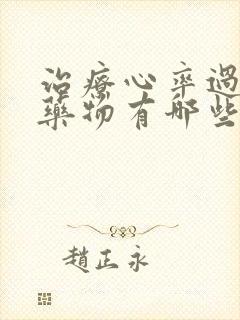 治療心率過
藥物有哪些
趙正永